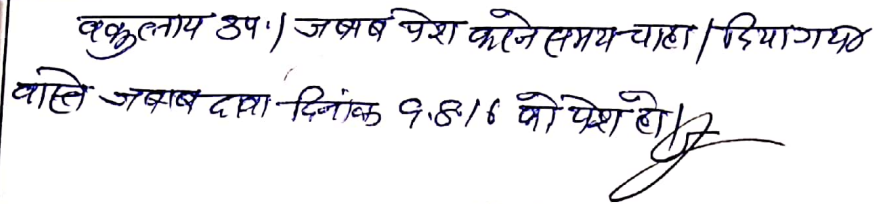 वकुलाय उप.। जबाब पेश करने समय चाहा। दिया गया
वास्ते जबाब दावा दिनांक 9.8.16 को पेश हो।